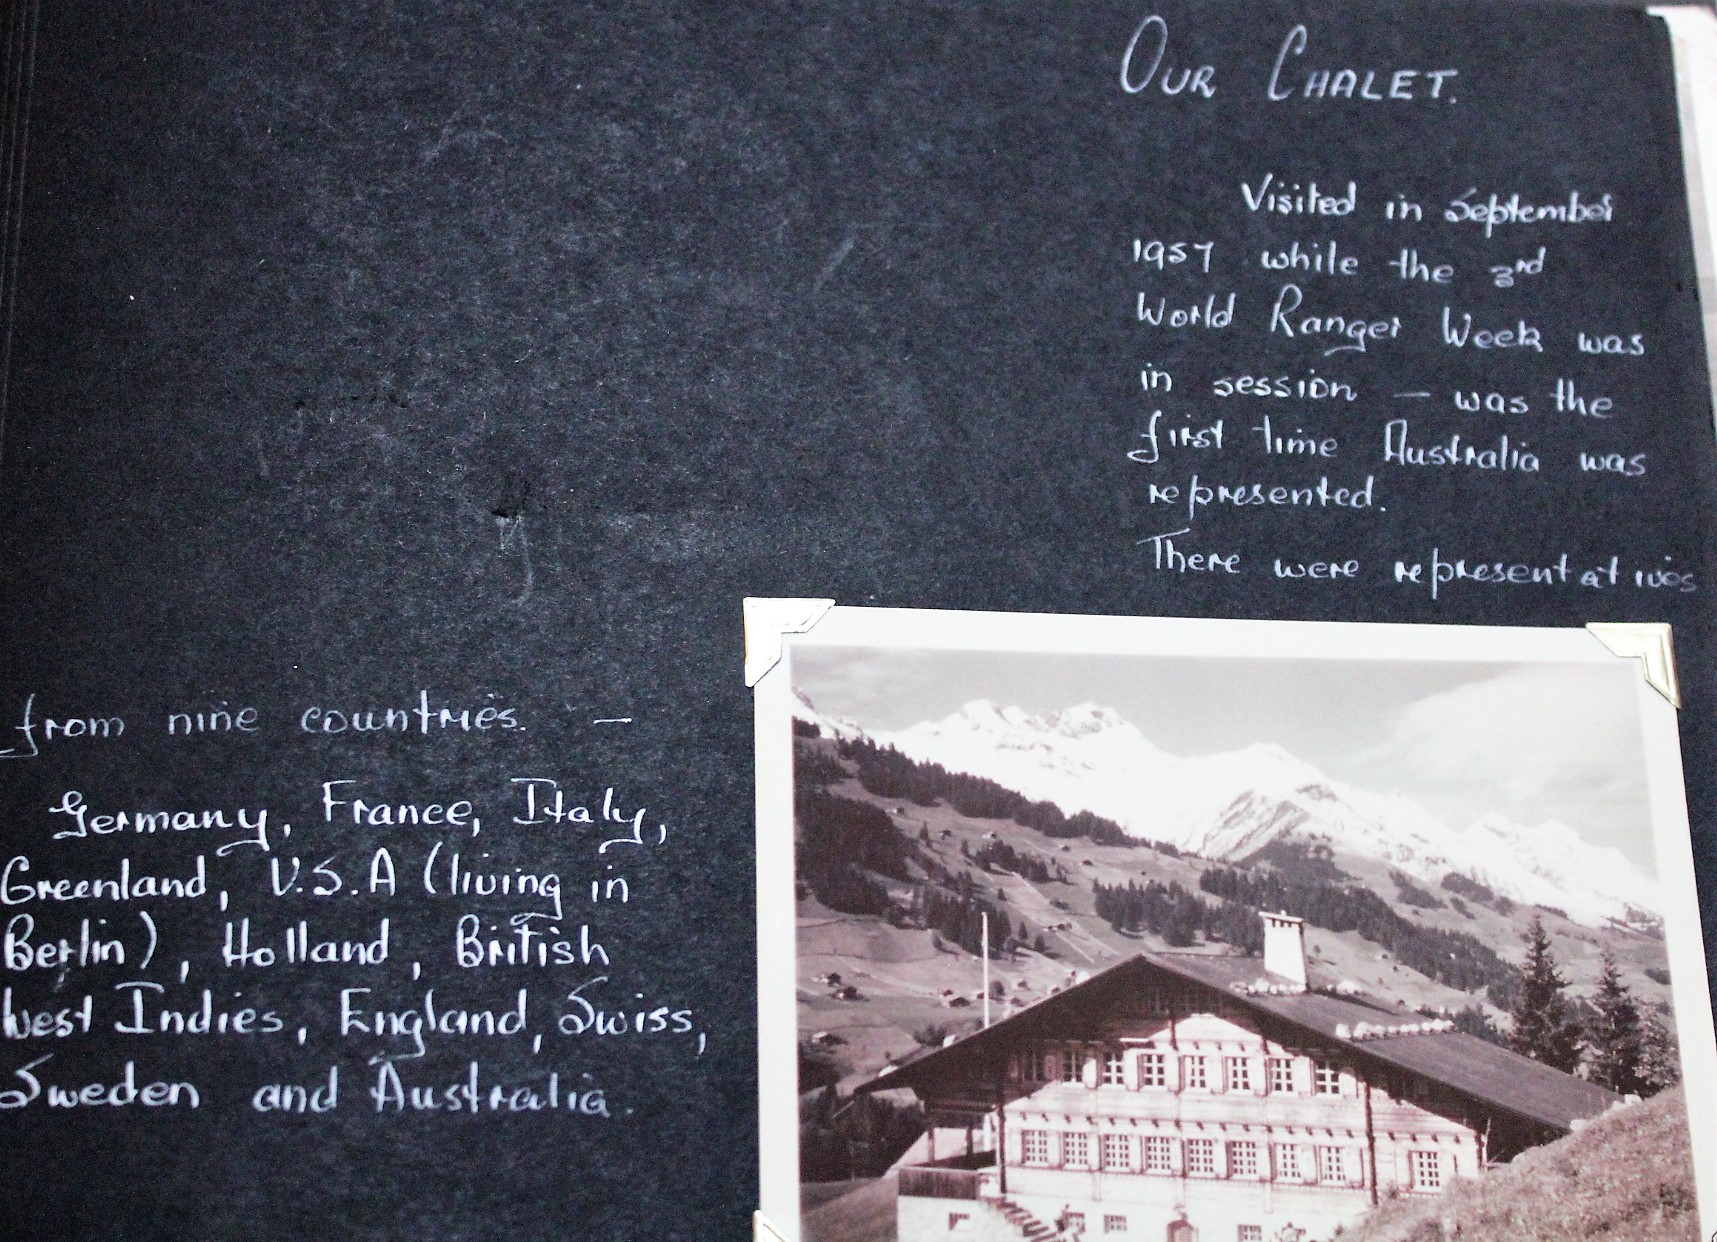 OUR CHALET.
Visited in September
1957 while the 3rd
World Ranger Week was
in session – was the
first time Australia was
represented.
There were representatives
from nine countries. –
Germany, France, Italy,
Greenland, U.S.A (living in
Berlin), Holland, British
West Indies, England, Swiss,
Sweden and Australia.